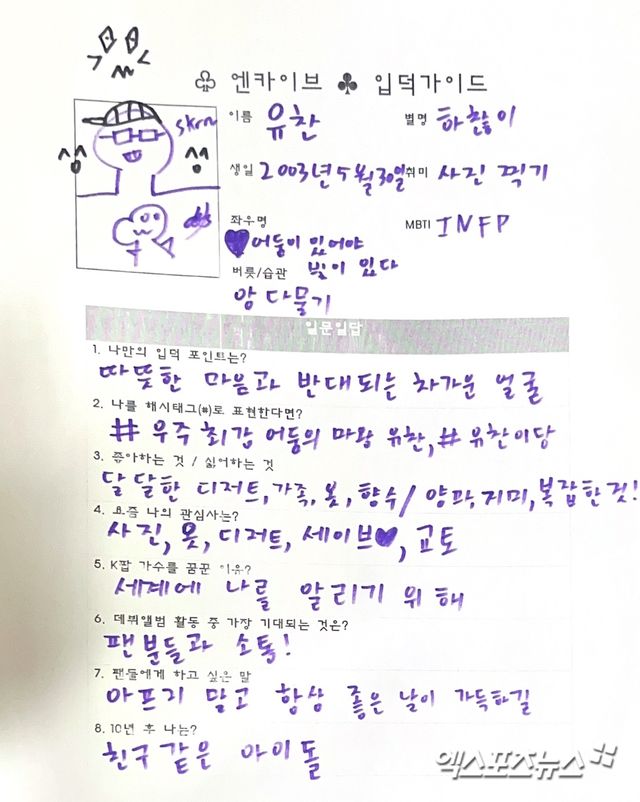 ♧ 엔카이브 ♣ 입덕가이드
이름 유찬 별명 하찮이
생일 2003년 5월 30일 취미 사진 찍기
좌우명 MBTI INFP
어둠이 있어야
빛이 있다
버릇/습관
앙 다물기
일문일답
1. 나만의 입덕 포인트는?
따뜻한 마음과 반대되는 차가운 얼굴
2. 나를 해시태그(#)로 표현한다면?
# 우주 최강 어둠의 마왕 유찬, # 유찬이당
3. 좋아하는 것 / 싫어하는 것
달달한 디저트, 가족, 옷, 향수 / 양파, 가지, 복잡한 것!
4. 요즘 나의 관심사는?
사진, 옷, 디저트, 세이브♥, 교토
5. K팝 가수를 꿈꾼 이유?
세계에 나를 알리기 위해
6. 데뷔앨범 활동 중 가장 기대되는 것은?
팬분들과 소통!
7. 팬들에게 하고 싶은 말
아프지 말고 항상 좋은 날이 가득하길
8. 10년 후 나는?
친구 같은 아이돌
엑스포츠뉴스